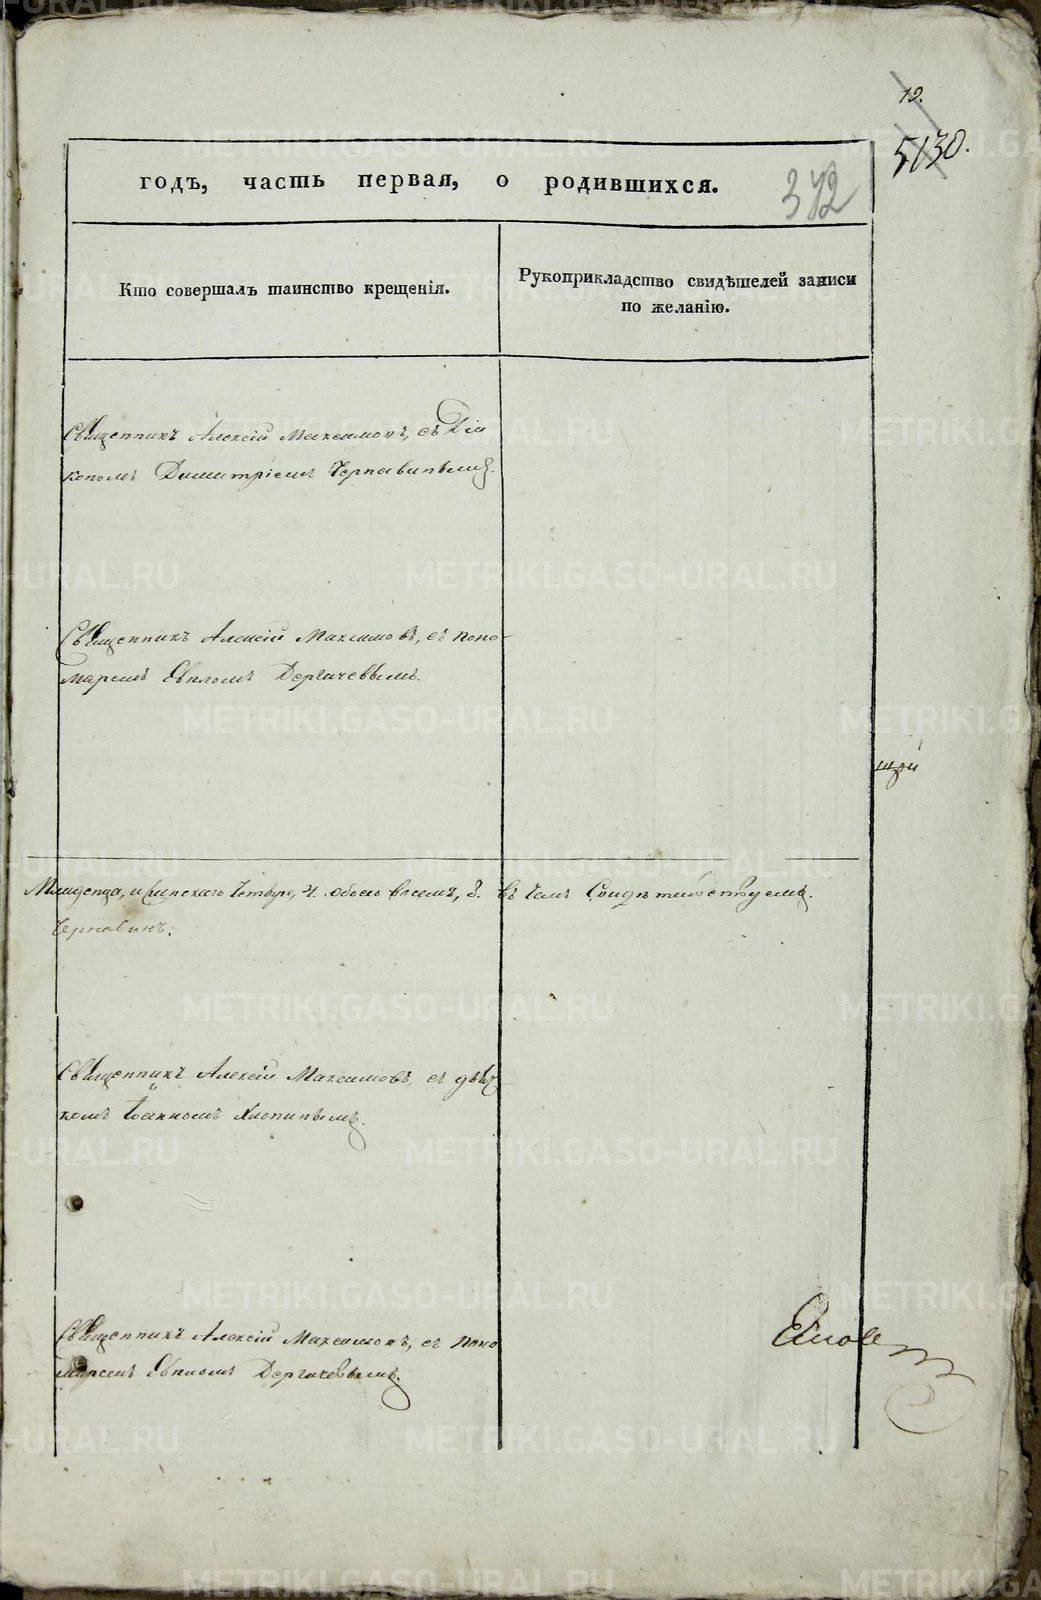 19.
5130.
годъ, часть первая, о родившихся.
372
Кто совершалъ таинство крещенія.
Рукоприкладство свидѣтелей записи
по желанію.
Священникъ Алексій Максимовъ, съ Діа
кономъ Димитріемъ Чернавинымъ.
Священникъ Алексій Максимовъ, съ поно-
маремъ Евпломъ Дергачевымъ.
три
Младенца, и женскаго четыре, 4. обоего всемъ, 8. въ чемъ Свидѣтельствуемъ.
Чернавинъ.
Священникъ Алексій Максимовъ, съ дьяч
комъ Іоанномъ Хлопинымъ.
Священникъ Алексій Максимовъ, съ поно
маремъ Евпломъ Дергачевымъ.
METRIKI.GASO-URAL.RU